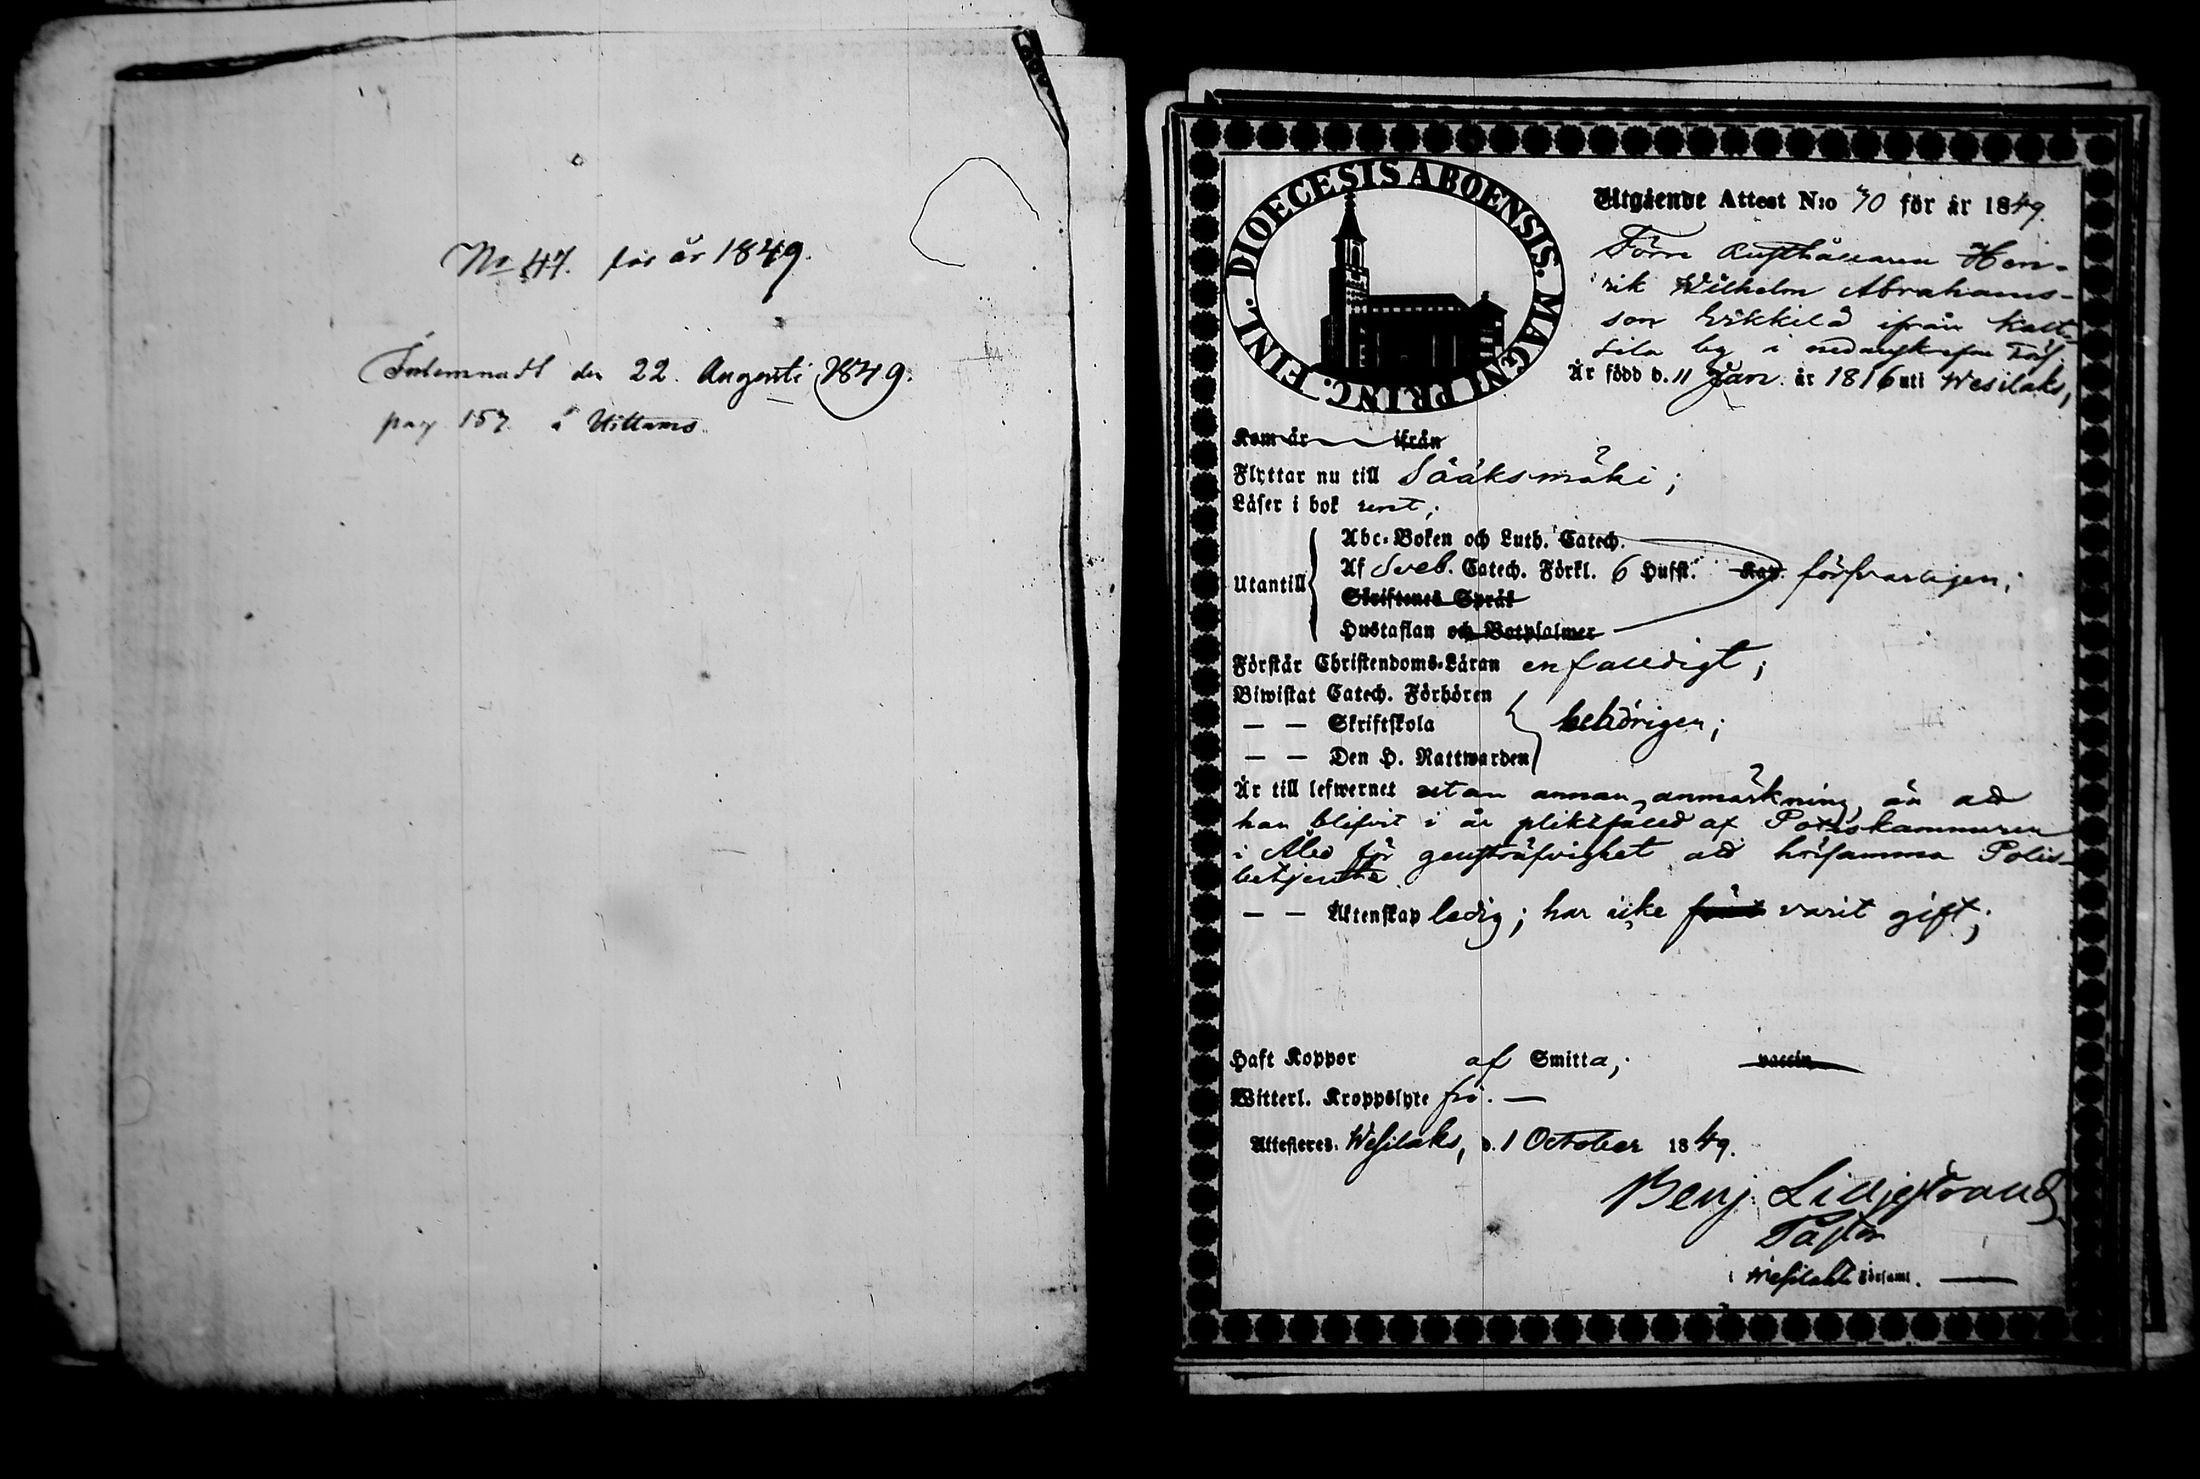 No 47. för år 1849.
Inlemnadt den 22. Augusti 1849.
pag 157 å Uittamo
DIOECESIS ABOENSIS. MAGNI PRINC. FINL.
Utgående Attest N:o 70 för år 1849.
Förre Rusthållaren Hen-
rik Wilhelm Abrahams-
son Erkkilä ifrån
by i
Är född d. 11 Jan. år 1816 uti Wesilaks,
Kom år ifrån
Flyttar nu till Sääksmäki;
Läser i bok rent;
Utantill
Abc-Boken och Luth. Catech.
Af Sveb. Catech. Förkl. 6 Hufst. Kap. försvarligen;
Skriftenes Språk
Hustaflan och Botpsalmer
Förstår Christendoms-Läran enfalldigt;
Biwistat Catech. Förhören
— — Skriftskola behörigen;
— — Den H. Nattwarden
Är till lefwernet utan annan anmärkning, än att
han blifvit i år pliktfälld af Poliskammaren
i Åbo för gensträfvighet att hörsamma Polis-
betjente.
— — Äktenskap ledig; har icke varit gift;
Haft Koppor af Smitta; vaccin
Witterl. Kroppslyte fri. —
Attesteres. Wesilaks, d. 1 October 1849.
Benj. Liljestrand
Pastor
i Wesilaks Församl. —